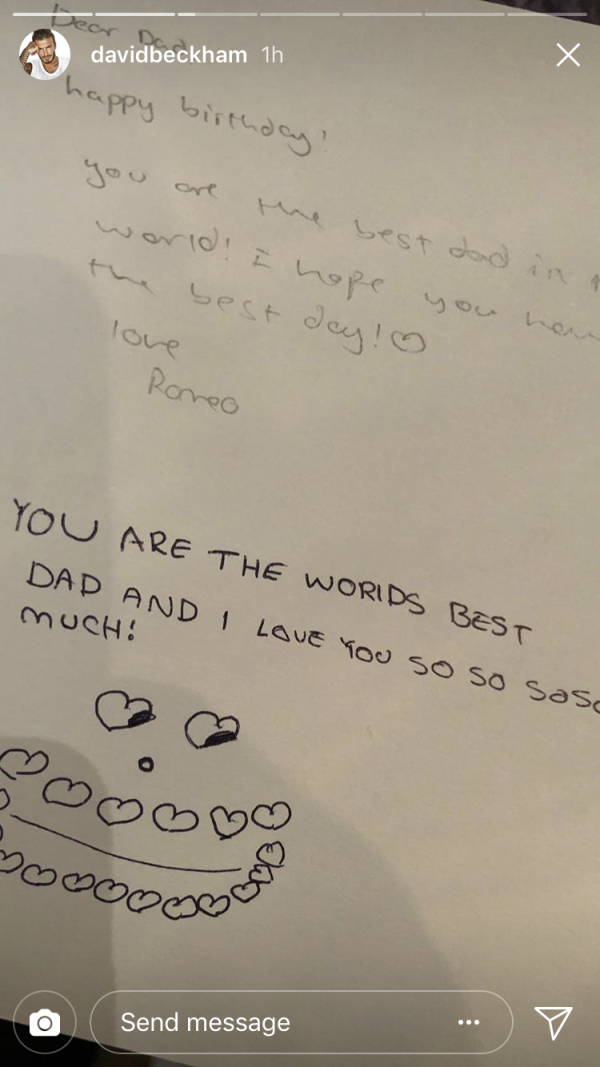 Dear Dad
davidbeckham 1h
happy birthday!
you are the best dad in
world! I hope you
the best day!
love
Romeo
YOU ARE THE WORlDS BEST
DAD AND I LOVE YOU SO SO SOSO
MUCH!
Send message